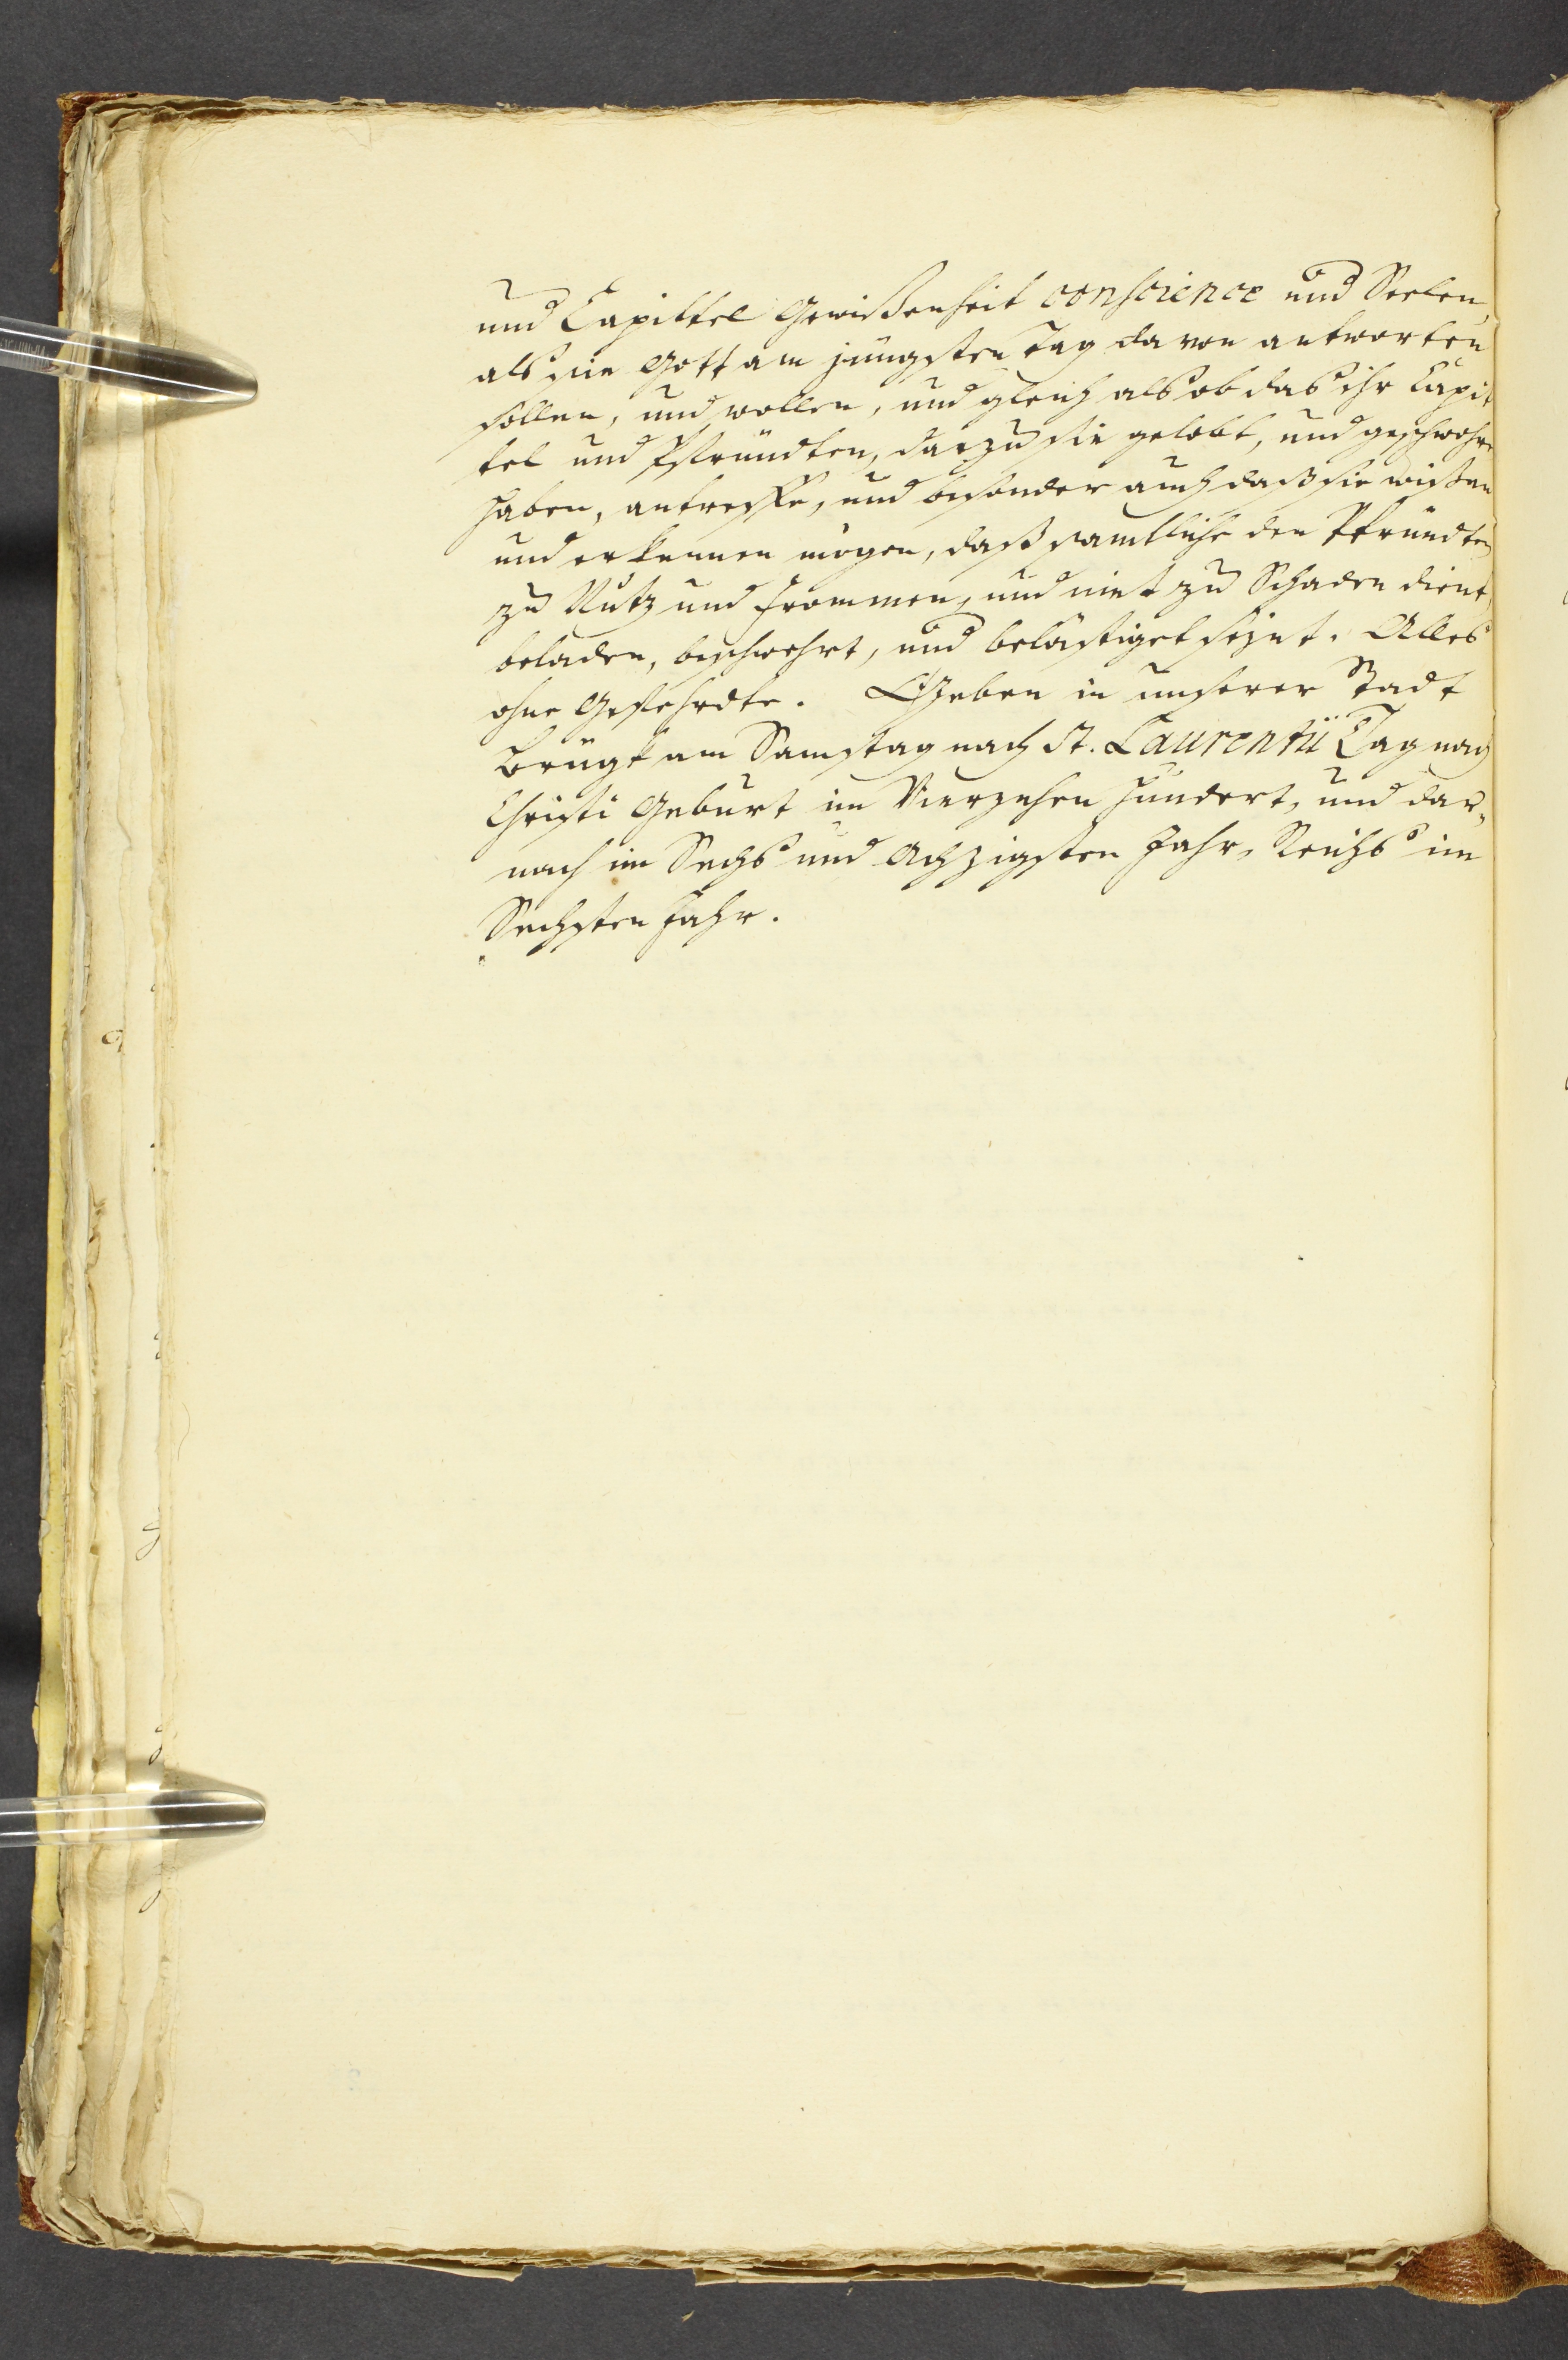 und Capittel Gewißenheit conscience und Seelen,
als sie Gott am jüngsten Tag davon antworten
sollen, und wollen, und gleich als ob das ihr Capit
tel und Pfründten, darzu sie gelobt, und geschwohre
haben, antreffe, und besonder auch daß sie wißen
und erkennen mögen, daß samtliche den Pfründten
zu Nutz und frommen, und niet zu Schaden dient,
beladen, beschwehrt, und belästiget seynt. Alles
ohne Gefehrdte. Geben in unserer Stadt
Brügk am Samstag nach St. Laurentii Tag nach
Christi Geburt im Vierzehen hundert, und dar„
nach im Sechs und Achzigsten Jahr, Reichs im
Sechsten Jahr.